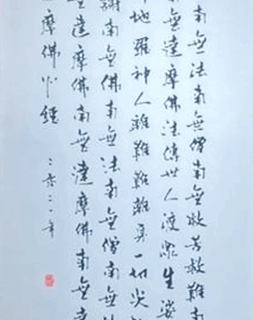 南無法南無僧南無救苦救難南
無達摩佛法傳世人渡眾生娑
地羅神人離難難離身一切災
謝南無佛南無法南無僧南無
無達摩佛南無達摩佛南無達
摩佛心經
二〇二一年